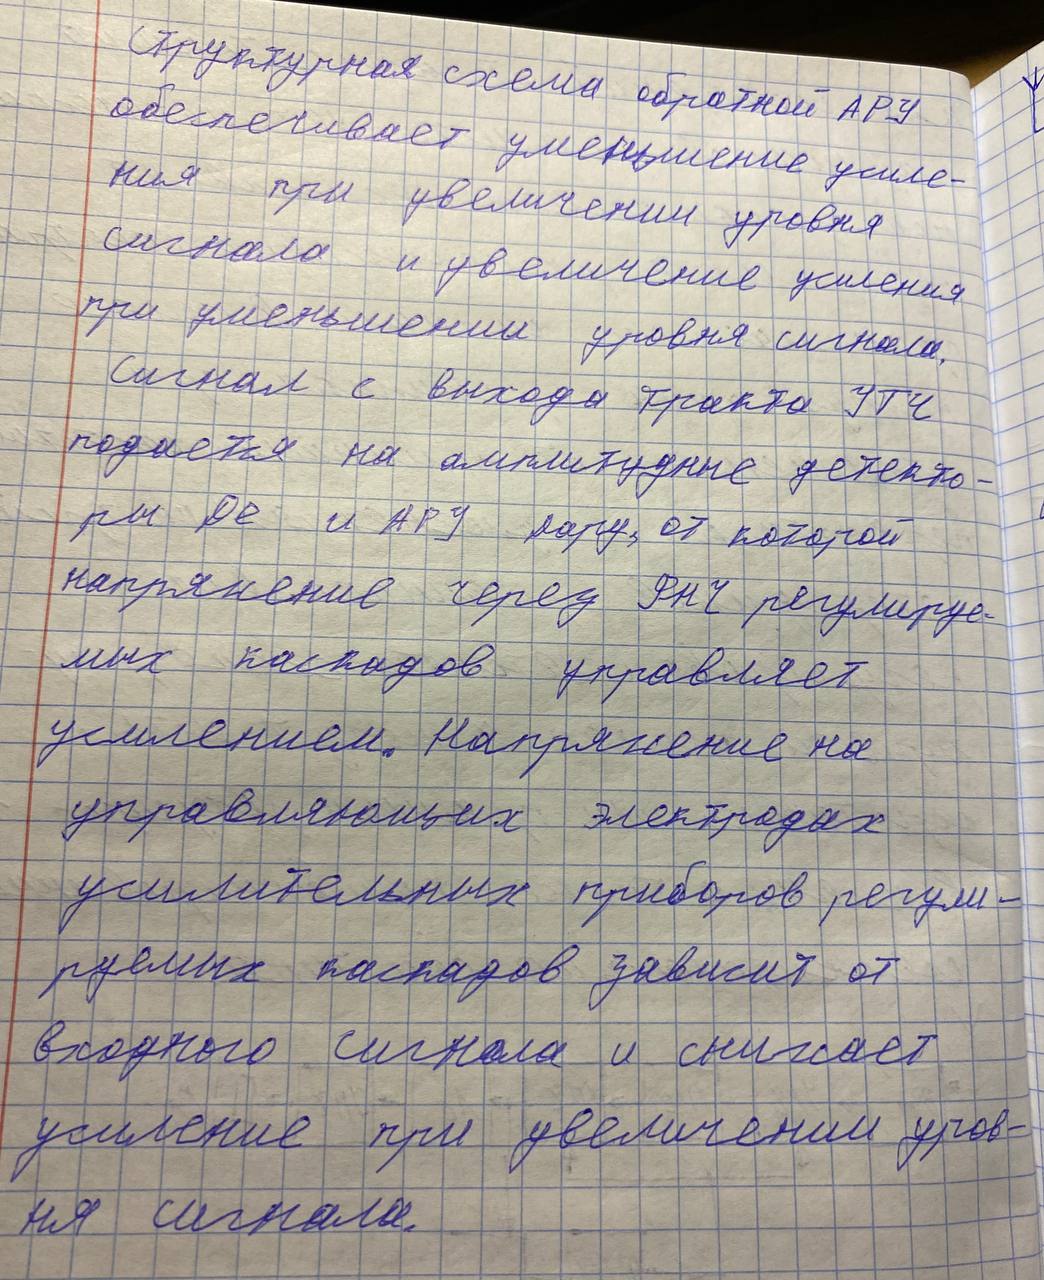 Структурная схема обратной АРУ
обеспечивает уменьшение усиле-
ния при увеличении уровня
сигнала и увеличение усиления
при уменьшении уровня сигнала.
Сигнал с выхода тракта УПЧ
подается на амплитудные детекто-
ры Dc и АРУ Dару, от которой
напряжение через ФНЧ регулируе-
мых каскадов управляет
усилением. Напряжение на
управляющих электродах
усилительных приборов регули-
руемых каскадов зависит от
входного сигнала и снижает
усиление при увеличении уров-
ня сигнала.